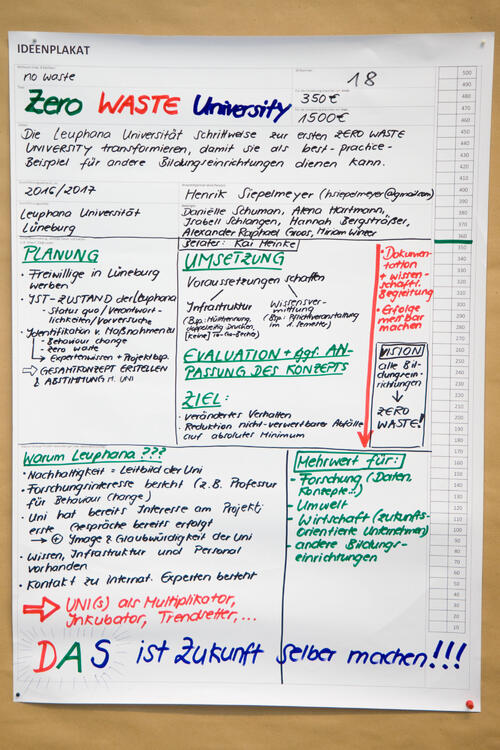 IDEENPLAKAT
no waste
18
Zero WASTE University
350€
1500€
Die Leuphana Universität schrittweise zur ersten ZERO WASTE
UNIVERSITY transformieren, damit sie als best-practice-
Beispiel für andere Bildungseinrichtungen dienen kann.
2016/2017
Henrik Siepelmeyer (hsiepelmeyer@gmail.com)
Leuphana Universität
Lüneburg
Danielle Schuman, Alena Hartmann,
Isabell Schlangen, Hannah Bergsträßer,
Alexander Raphael Groos, Miriam Winer
Berater: Kai Heinke
PLANUNG
· Freiwillige in Lüneburg
werben
· IST-ZUSTAND der Leuphana
- Status quo/Verantwort-
lichkeiten/Vorversuche
· Identifikation v. Maßnahmen zu
- Behaviour change
- zero waste
→ Expertenwissen + Projektbsp.
⇒ GESAMTKONZEPT ERSTELLEN
& ABSTIMMUNG M. UNI
UMSETZUNG
Voraussetzungen schaffen
Infrastruktur
(Bsp.: Mülltrennung,
doppelseitig Drucken,
keine To-Go-Becher)
Wissensver-
mittlung
(Bsp.: Pflichtveranstaltung
im 1. Semester)
EVALUATION + ggf. AN-
PASSUNG DES KONZEPTS
ZIEL:
· verändertes Verhalten
· Reduktion nicht-verwertbarer Abfälle
auf absolutes Minimum
· Dokumen-
tation
+ wissen-
schaftl.
Begleitung
· Erfolge
messbar
machen
VISION
alle Bil-
dungsein-
richtungen
↓
ZERO
WASTE!
Warum Leuphana ???
· Nachhaltigkeit = Leitbild der Uni
· Forschungsinteresse besteht (z.B. Professur
für Behaviour Change)
· Uni hat bereits Interesse am Projekt;
erste Gespräche bereits erfolgt
→ ⊕ Image & Glaubwürdigkeit der Uni
· Wissen, Infrastruktur und Personal
vorhanden
· Kontakt zu internat. Experten besteht
⇒ UNI(s) als Multiplikator,
Inkubator, Trendsetter,...
Mehrwert für:
- Forschung (Daten,
Konzepte...)
- Umwelt
- Wirtschaft (zukunfts-
orientierte Unternehmen)
- andere Bildungs-
einrichtungen
DAS ist Zukunft selber machen!!!
500
490
480
470
460
450
440
430
420
410
400
390
380
370
360
350
340
330
320
310
300
290
280
270
260
250
240
230
220
210
200
190
180
170
160
150
140
130
120
110
100
90
80
70
60
50
40
30
20
10